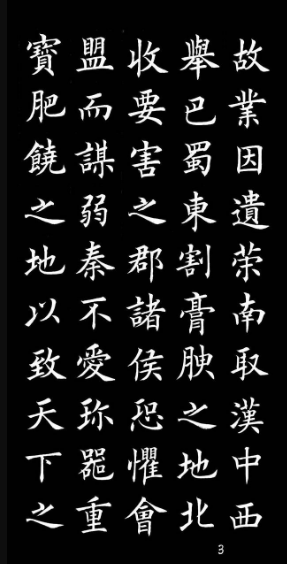 故業因遺荣南取漢中西
舉巴蜀東割膏腴之地北
收要害之郡諸侯恐懼會
盟而謀弱秦不愛珎噐重
寶肥饒之地以致天下之
3